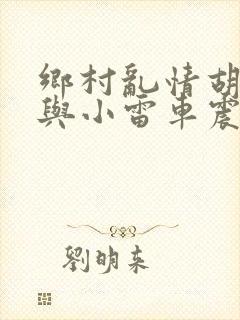 鄉村亂情胡
與小雷車震
劉明來